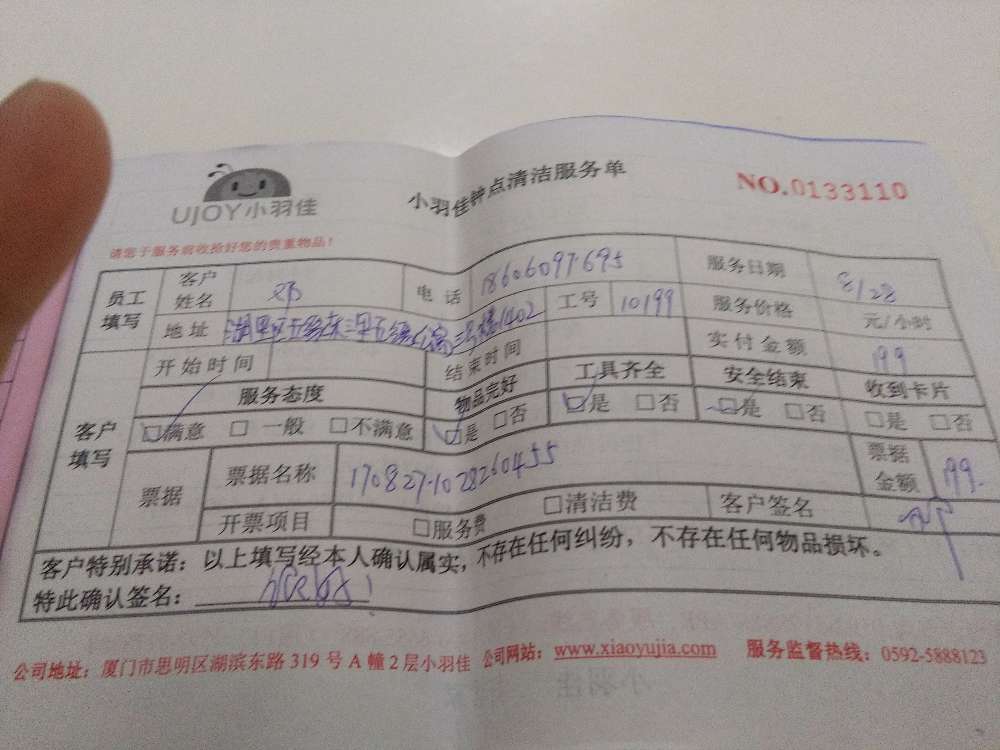 UJOY小羽佳
小羽佳钟点清洁服务单
NO.0133110
请您于服务前收拾好您的贵重物品!
员工填写 客户姓名 邓 电话 18606097695 服务日期 8/28
地址 湖里区 1402 工号 10199 服务价格 元/小时
开始时间 结束时间 实付金额 199
客户填写 服务态度 物品完好 工具齐全 安全结束 收到卡片
□满意 □一般 □不满意 □是 □否 □是 □否 □是 □否 □是 □否
票据 票据名称 170827-1028260455 票据金额 199
开票项目 □服务费 □清洁费 客户签名
客户特别承诺:以上填写经本人确认属实,不存在任何纠纷,不存在任何物品损坏。
特此确认签名:
公司地址:厦门市思明区湖滨东路 319 号 A 幢 2 层小羽佳 公司网站:www.xiaoyujia.com 服务监督热线:0592-5888123